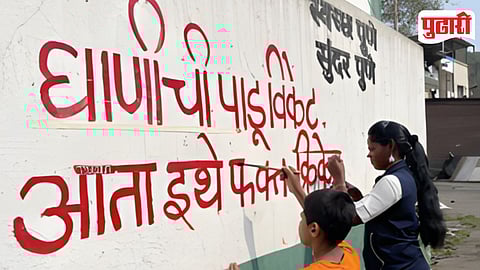 पुढारी
स्वच्छ पुणे
सुंदर पुणे
घाणीची पाडू विकेट,
आता इथे फक्त क्रिकेट